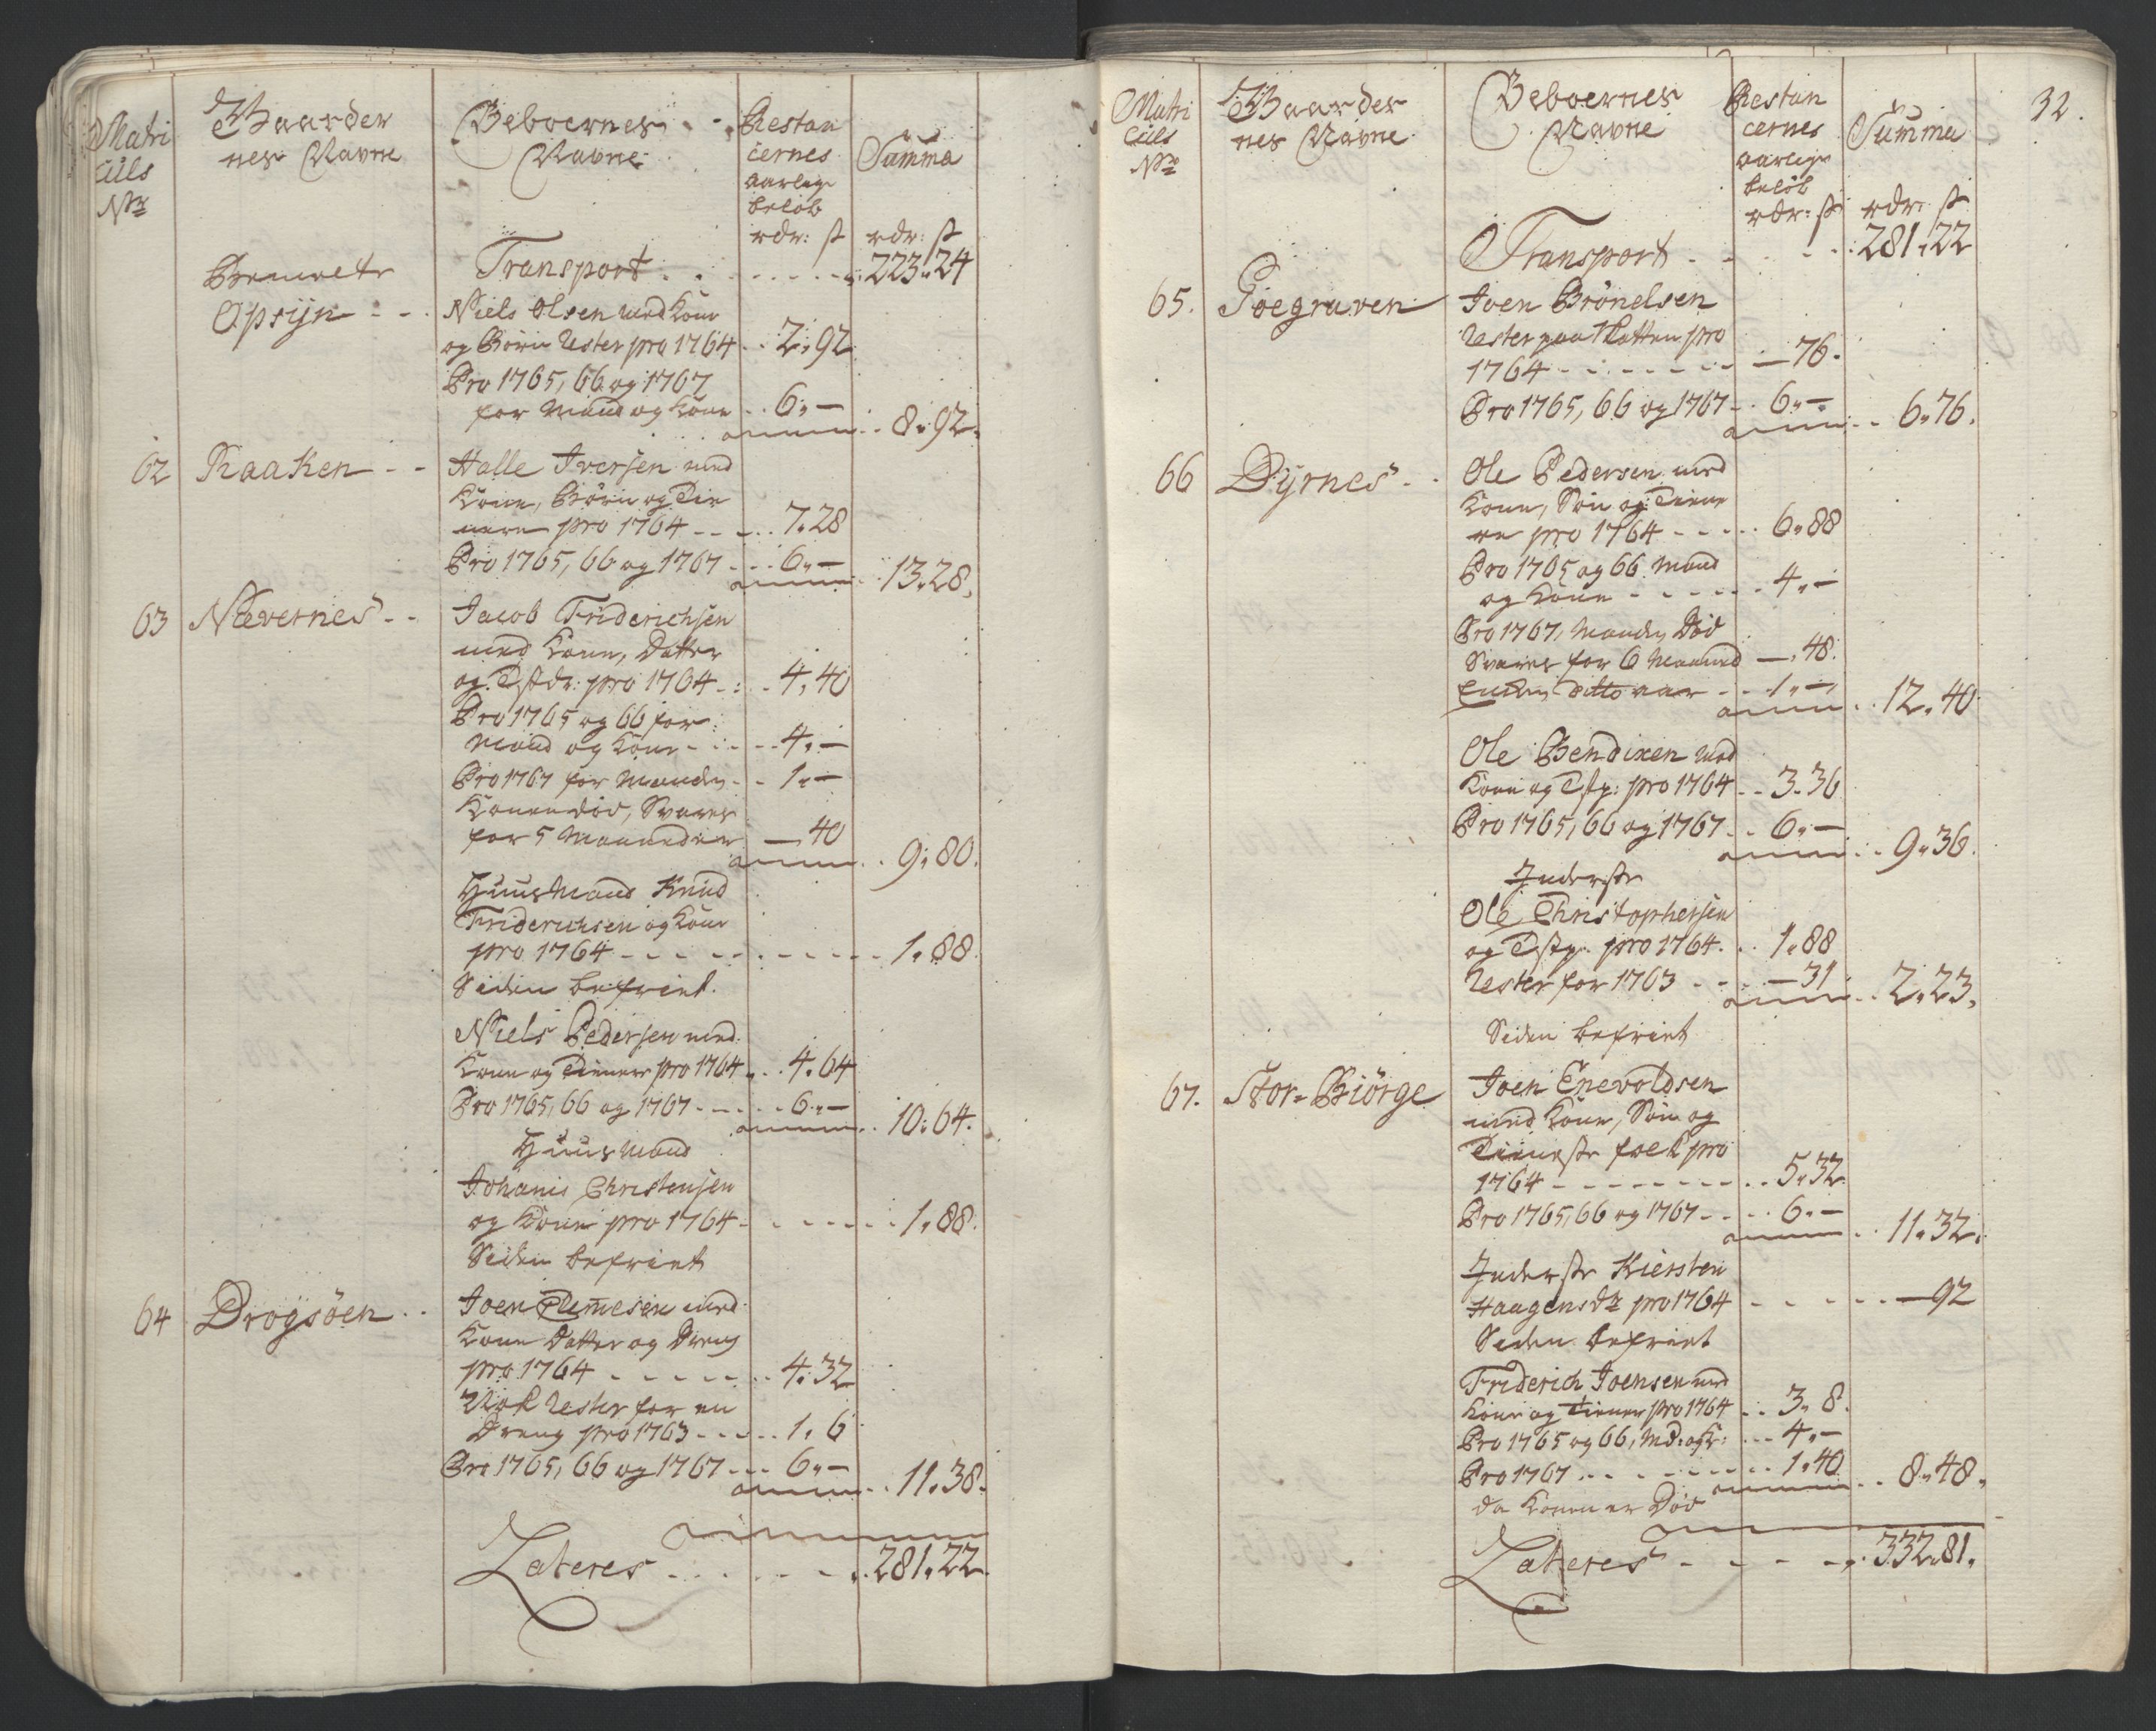 Matri
culs
No
Gaarder
nes Navne
Beboernes
Navne
Restan
cernes
aarlige
beløb
rdr: ß
Summa
rdr: ß
Transport . . . . . . . 223 " 24
Opsijn - - Niels Olsen med Kone
og Børn Rester pro 1764 . . 2 " 92
Pro 1765, 66 og 1767
for Mand og Kone . . 6 " —
8 " 92.
62 Raaken - - Halle Iversen med
Kone, Børn og Tie
nere pro 1764 - - . . 7 " 28
Pro 1765, 66 og 1767 - . . 6 " —
13 " 28.
63 Nævernes - - Jacob Friderichsen
med Kone, Datter
og Tstdr: pro 1764 - . . 4 " 40
Pro 1765 og 66 for
Mand og Kone - . . - 4 " —
Pro 1767 for Manden - . 1 " —
Konen død, Svarer
for 5 Maaneder — 40
9 " 80.
Huusmand Knud
Friderichsen og Kone
pro 1764 - - - - - - - - 1 " 88.
Siden befriet.
Niels Pedersen med
Kone og Tienere pro 1764 . . 4 " 64
Pro 1765, 66 og 1767 - - - . . 6 " —
10 " 64.
Huusmand
Johanis Christensen
og Kone pro 1764 - - - - - 1 " 88.
Siden befriet
64 Drogsöen . . Joen Tummesen med
Kone Datter og Dreng
pro 1764 - - - - - . . 4 " 32
Nok Rester for en
Dreng pro 1763 - - - . . 1 " 6
Pro 1765, 66 og 1767 - - - 6 " —
11 " 38.
Lateres . . . . . . . 281 " 22.
32.
Matri
culs
No
Gaarder
nes Navne
Beboernes
Navne
Restan
cernes
aarlige
beløb
rdr: ß
Summa
rdr: ß
Transport . . . . . 281 " 22
65. Goegraven Joen Brönelsen
Rester paa Skatten pro
1764 - - - - - - - — 76.
Pro 1765, 66 og 1767 - . 6 " —
6 " 76.
66 Dyrnes - . Ole Pedersen med
Kone, Søn og Tiene
re pro 1764 - - - . . 6 " 88
Pro 1765 og 66 Mand
og Kone - - - - - . 4 " —
Pro 1767, Manden Død
Svarer for 6 Maaned — " 48.
Enken ditto aar - - 1 " —
12 " 40.
Ole Bendixen med
Kone og Tstp: pro 1764 . . 3 " 36
Pro 1765, 66 og 1767 . . 6 " —
9 " 36.
Inderste
Ole Christophersen
og Tstp. pro 1764 . . . 1 " 88
Rester for 1763 . . . — 31
2 " 23.
Siden befriet
67. Stor-Biörge Joen Enevoldsen
med Kone, Søn og
Tieneste folk pro
1764 - - - - - - - . . 5 " 32
Pro 1765, 66 og 1767 - - . . 6 " —
11 " 32.
Inderste Kiersten
Haagensdr pro 1764 - - - - - — 92
Siden befriet
Friderich Joensen med
Kone og Tiener pro 1764 . . 3 " 8.
Pro 1765 og 66, Md: og K: . . . 4 " —
Pro 1767 . . - - - - - . . 1 " 40
8 " 48.
da Konen er Død
Lateres - - - - . . 332 " 81.